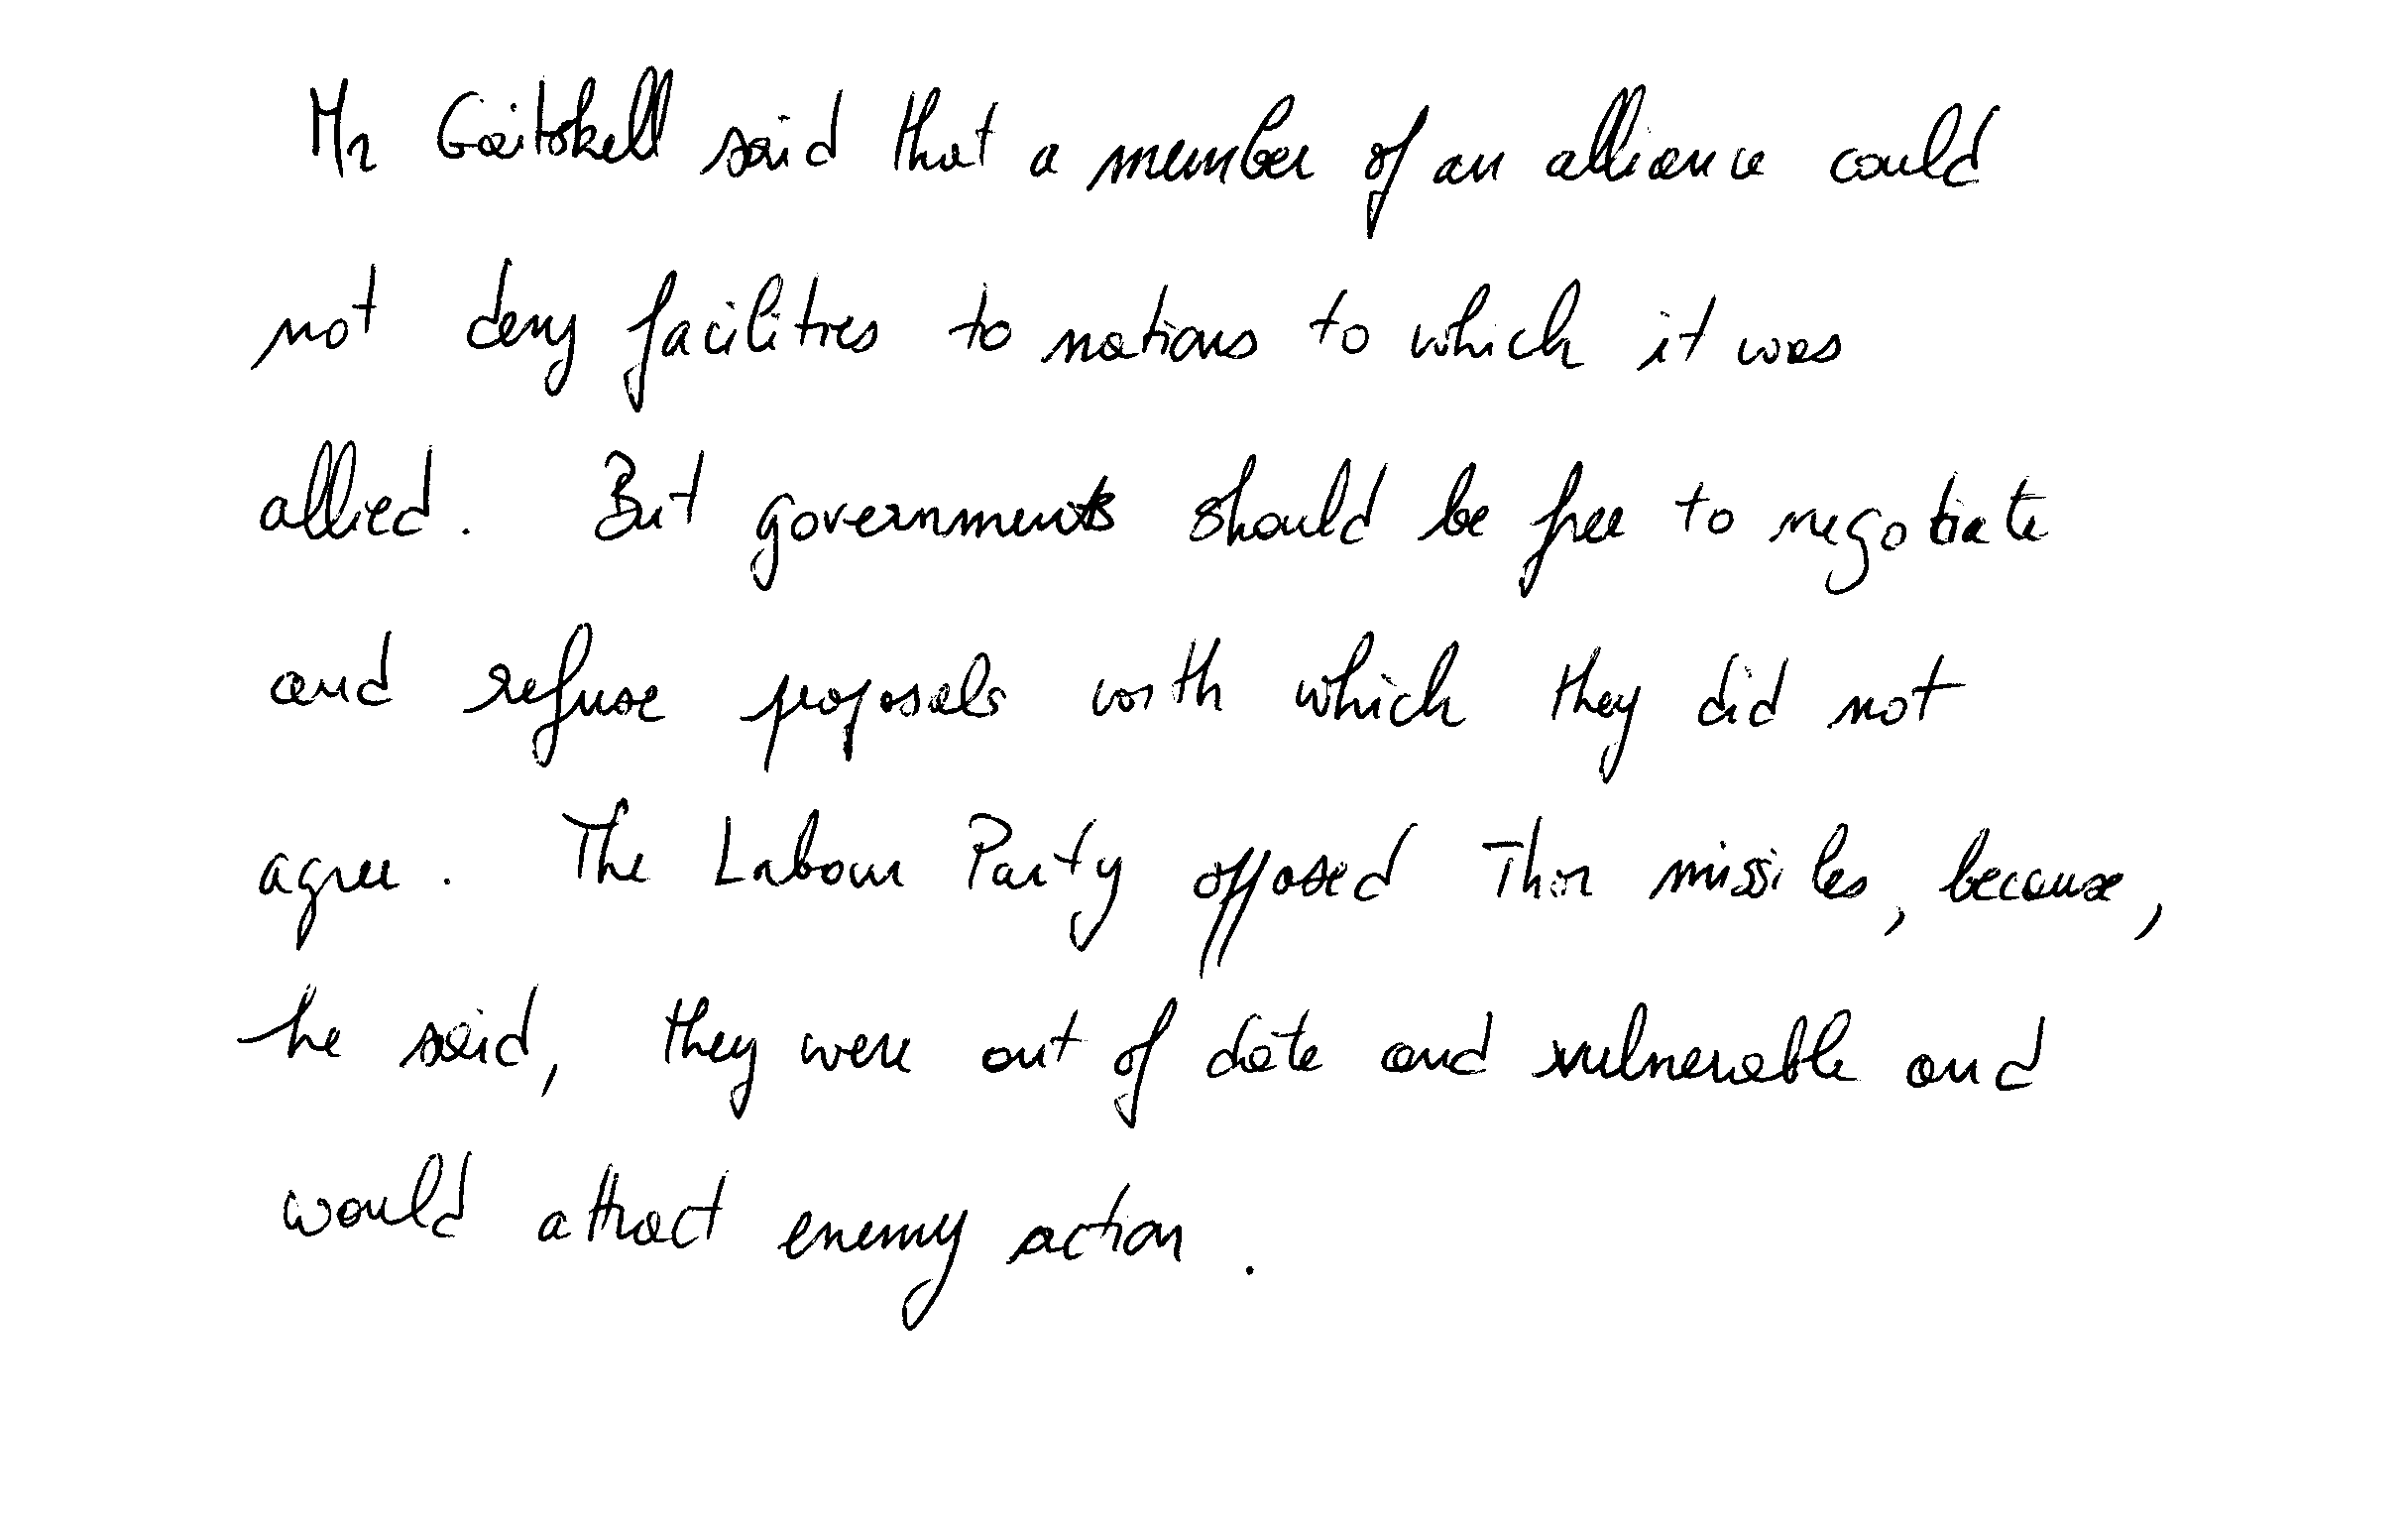 Mr Gaitskell said that a member of an alliance could
not deny facilities to nations to which it was
allied. But governments should be free to negotiate
and refuse proposals with which they did not
agree. The Labour Party opposed Thor missiles, because,
he said, they were out of date and vulnerable and
would attract enemy action.